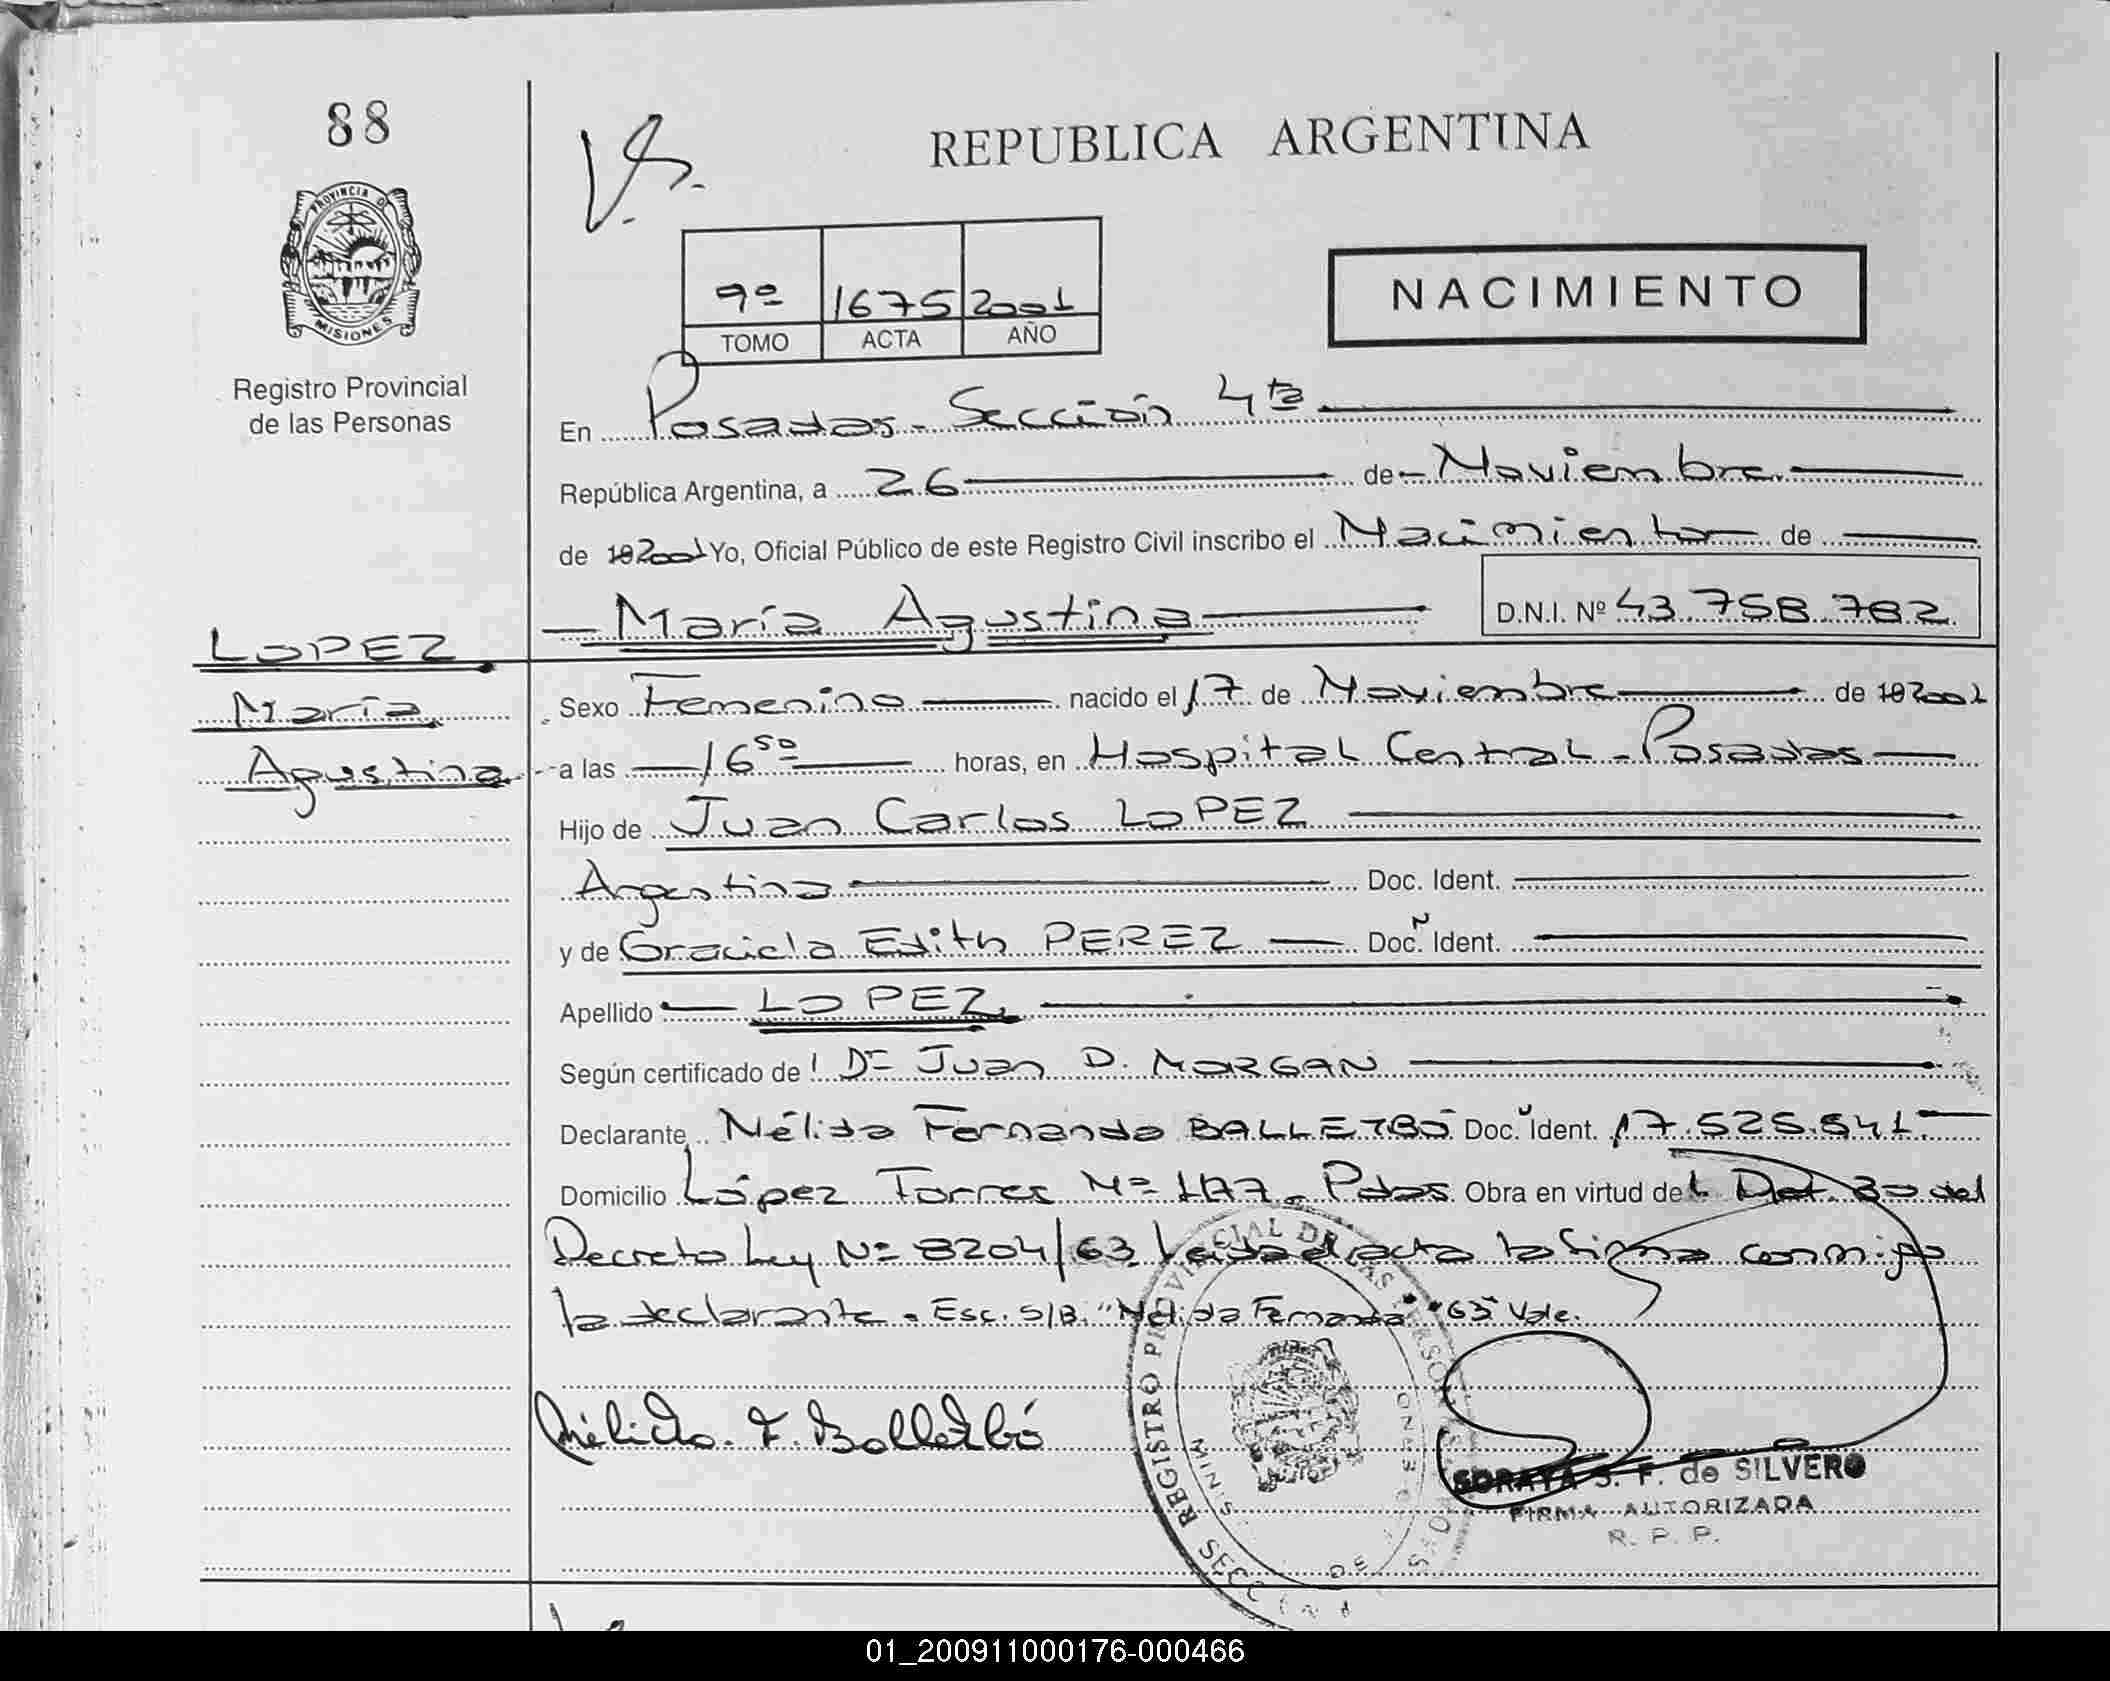 88
REPUBLICA ARGENTINA
PROVINCIA DE
MISIONES
9º 1675 2001
TOMO ACTA AÑO
NACIMIENTO
Registro Provincial
de las Personas
En Posadas - Sección 4ta
República Argentina, a 26 de Noviembre
de 192001 Yo, Oficial Público de este Registro Civil inscribo el Nacimiento de
María Agustina D.N.I. Nº 43.758.782
LOPEZ
María
Agustina
Sexo Femenino nacido el 17 de Noviembre de 192001
a las 16 50 horas, en Hospital Central - Posadas
Hijo de Juan Carlos LOPEZ
Argentina Doc. Ident.
y de Graciela Edith PEREZ Doc. Ident.
Apellido LOPEZ
Según certificado de Dr Juan D. MORGAN
Declarante Nélida Fernanda BALLETBÓ Doc. Ident. 17.525.541
Domicilio López Torres Nº 177 - Pdas. Obra en virtud del Dct. 30 del
Decreto Ley Nº 8204/63. Leida el acta la firma conmigo
la declarante - Esc. S/B. "Nélida Fernanda" "63" Vale.
Nélida F. Balletbó
REGISTRO PROVINCIAL DE LAS PERSONAS
SORAYA S. F. de SILVERO
FIRMA AUTORIZADA
R. P. P.
01_200911000176-000466